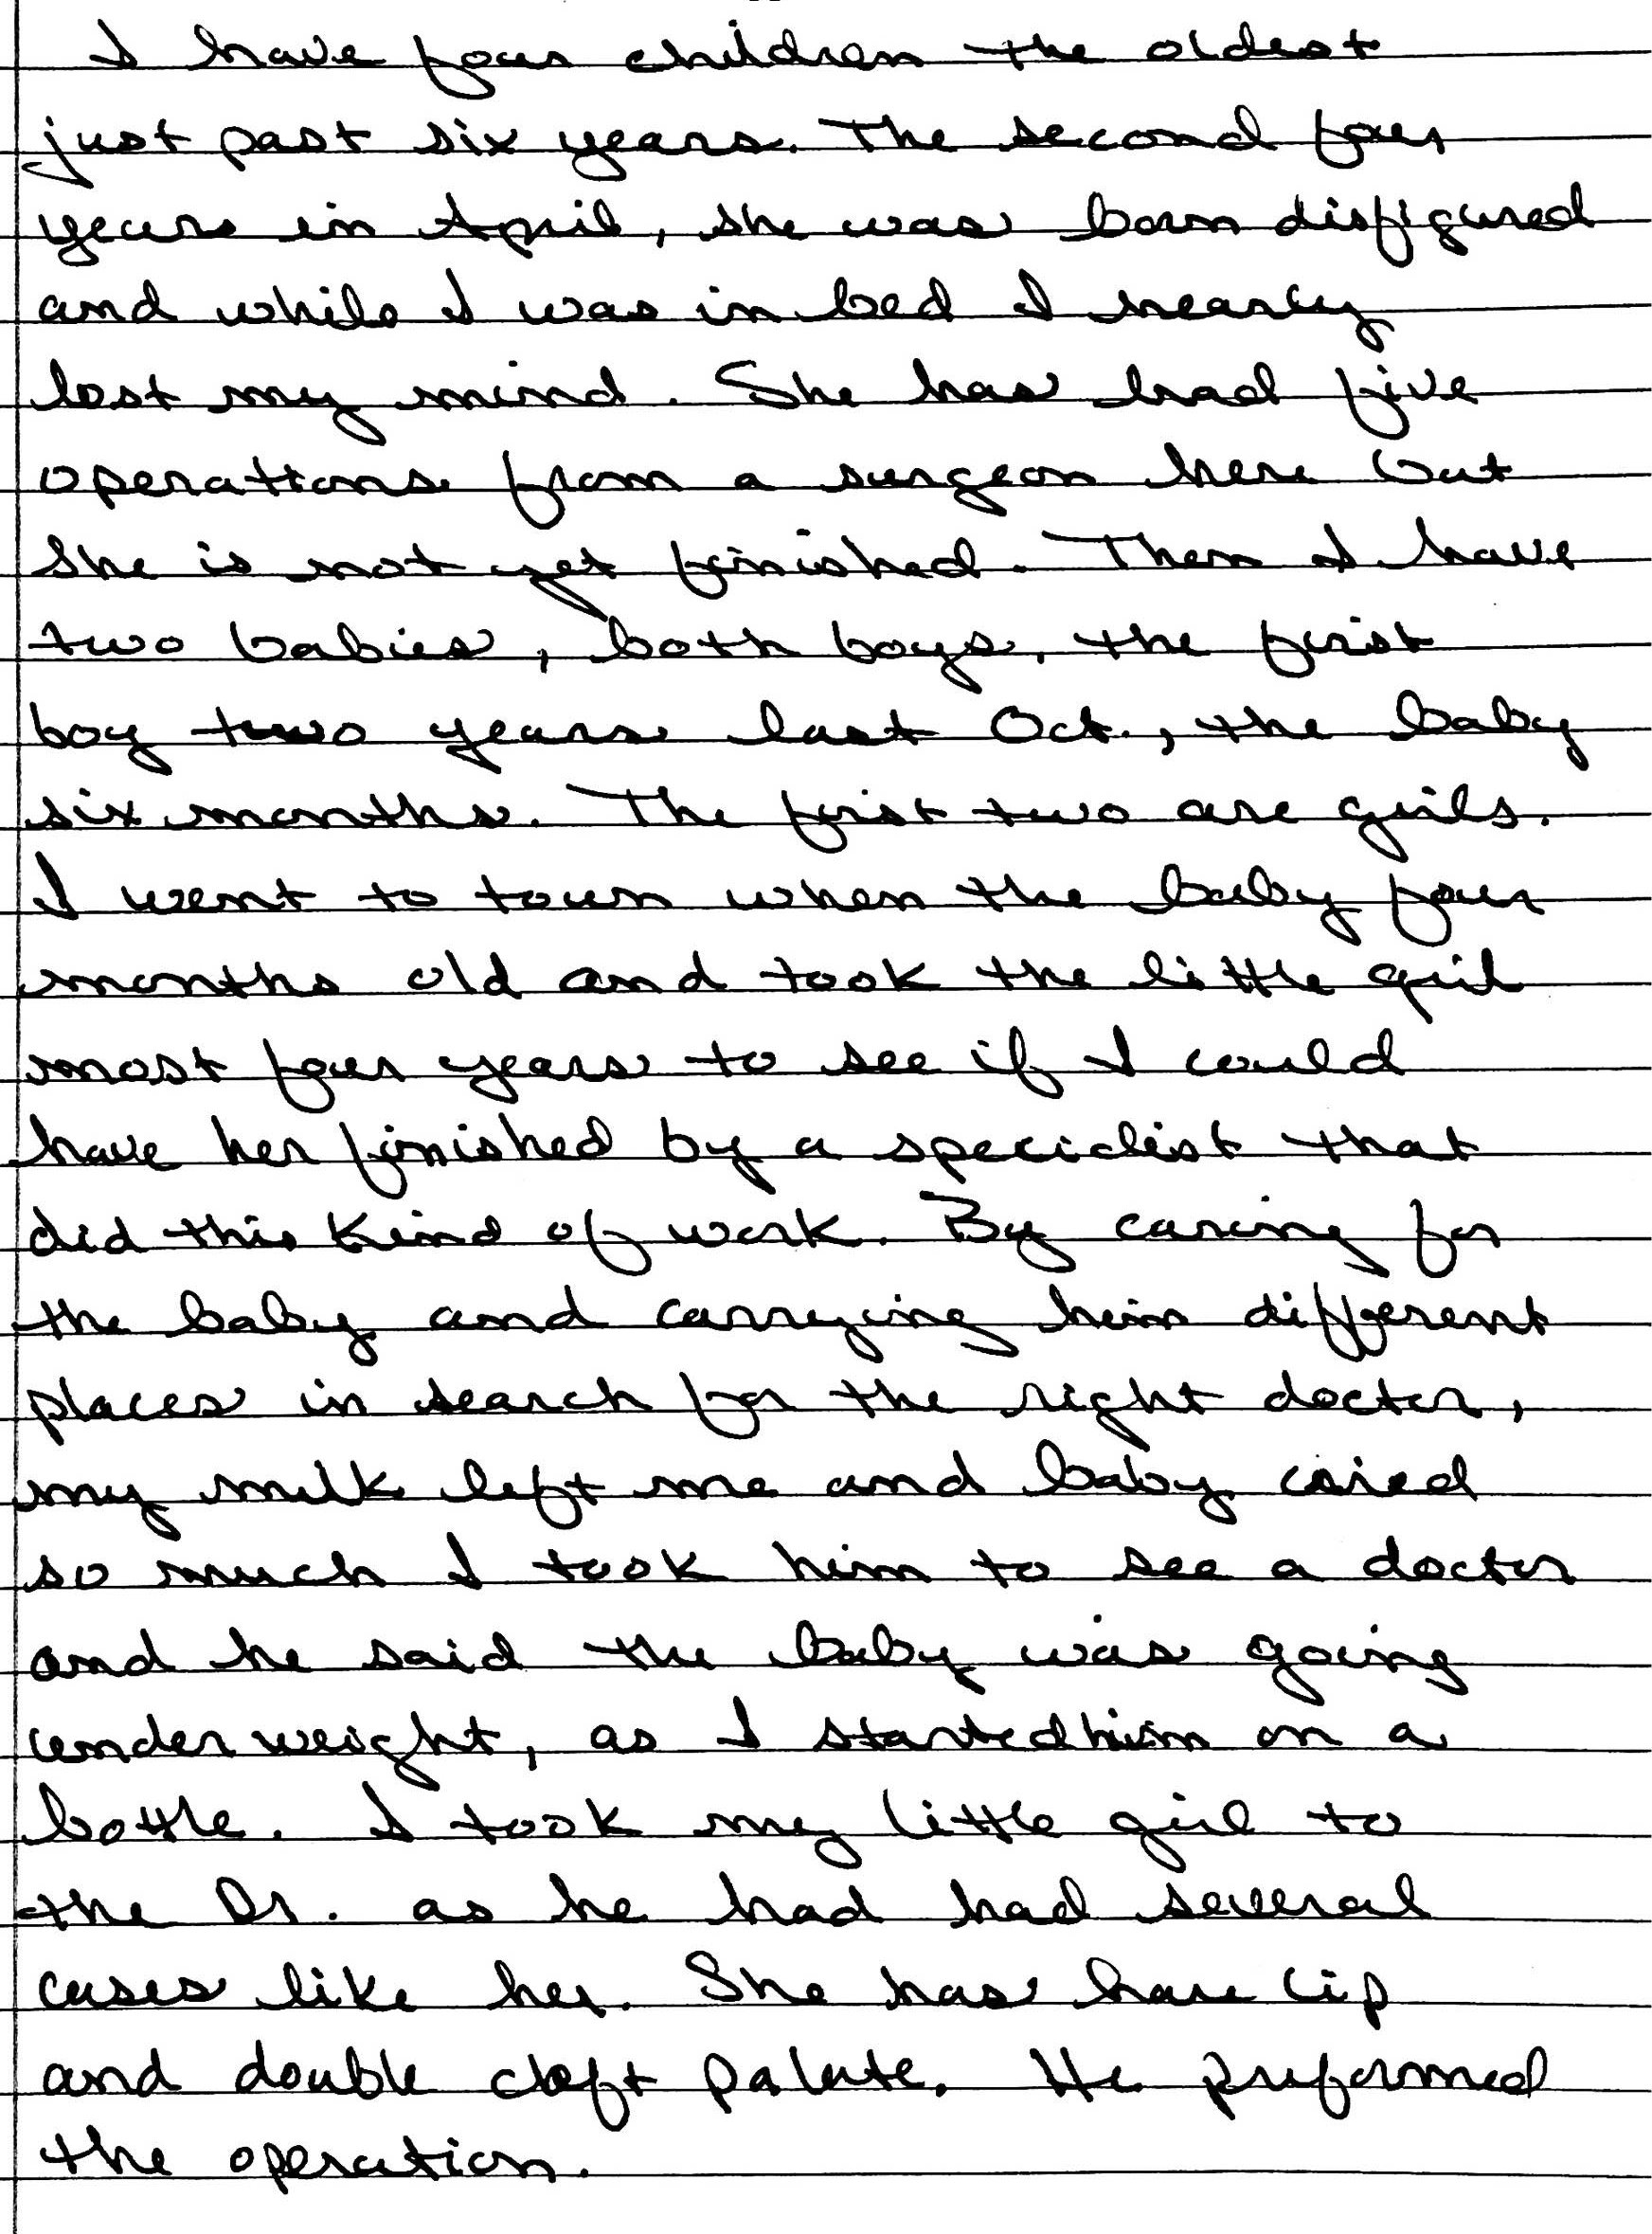 I have four children the oldest
just past six years. The second four
years in April, she was born disfigured
and while I was in bed I nearly
lost my mind. She has had five
operations from a surgeon here but
she is not yet finished. Then I have
two babies, both boys, the first
boy two years last Oct., the baby
six months. The first two are girls.
I went to town when the baby four
months old and took the little girl
most four years to see if I could
have her finished by a specialist that
did this kind of work. By caring for
the baby and carrying him different
places in search for the right doctor,
my milk left me and baby cried
so much I took him to see a doctor
and he said the baby was going
under weight, as I started him on a
bottle. I took my little girl to
the Dr. as he had had several
cases like her. She has hare lip
and double cleft palate. He preformed
the operation.